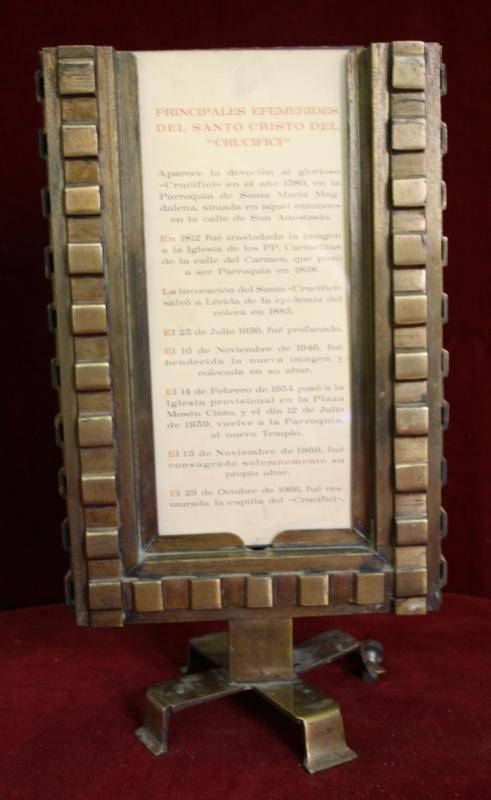 PRINCIPALES EFEMERIDES
DEL SANTO CRISTO DEL
"CRUCIFICI"
Aparece la devoción al glorioso
«Crucifici» en el año 1580, en la
Parroquia de Santa María Mag-
dalena, situada en aquel entonces
en la calle de San Anastasio.
En 1812 fué trasladada la imagen
a la Iglesia de los PP. Carmelitas
de la calle del Carmen, que pasó
a ser Parroquia en 1838.
La invocación del Santo «Crucifici»
salvó a Lérida de la epidemia del
cólera en 1885.
El 25 de Julio 1936, fué profanado.
El 16 de Noviembre de 1946, fué
bendecida la nueva imagen y
colocada en su altar.
El 14 de Febrero de 1954 pasó a la
Iglesia provisional en la Plaza
Mosén Cinto, y el día 12 de Julio
de 1959, vuelve a la Parroquia,
al nuevo Templo.
El 13 de Noviembre de 1960, fué
consagrado solemnemente su
propio altar.
El 23 de Octubre de 1966, fué res-
taurada la capilla del «Crucifici».